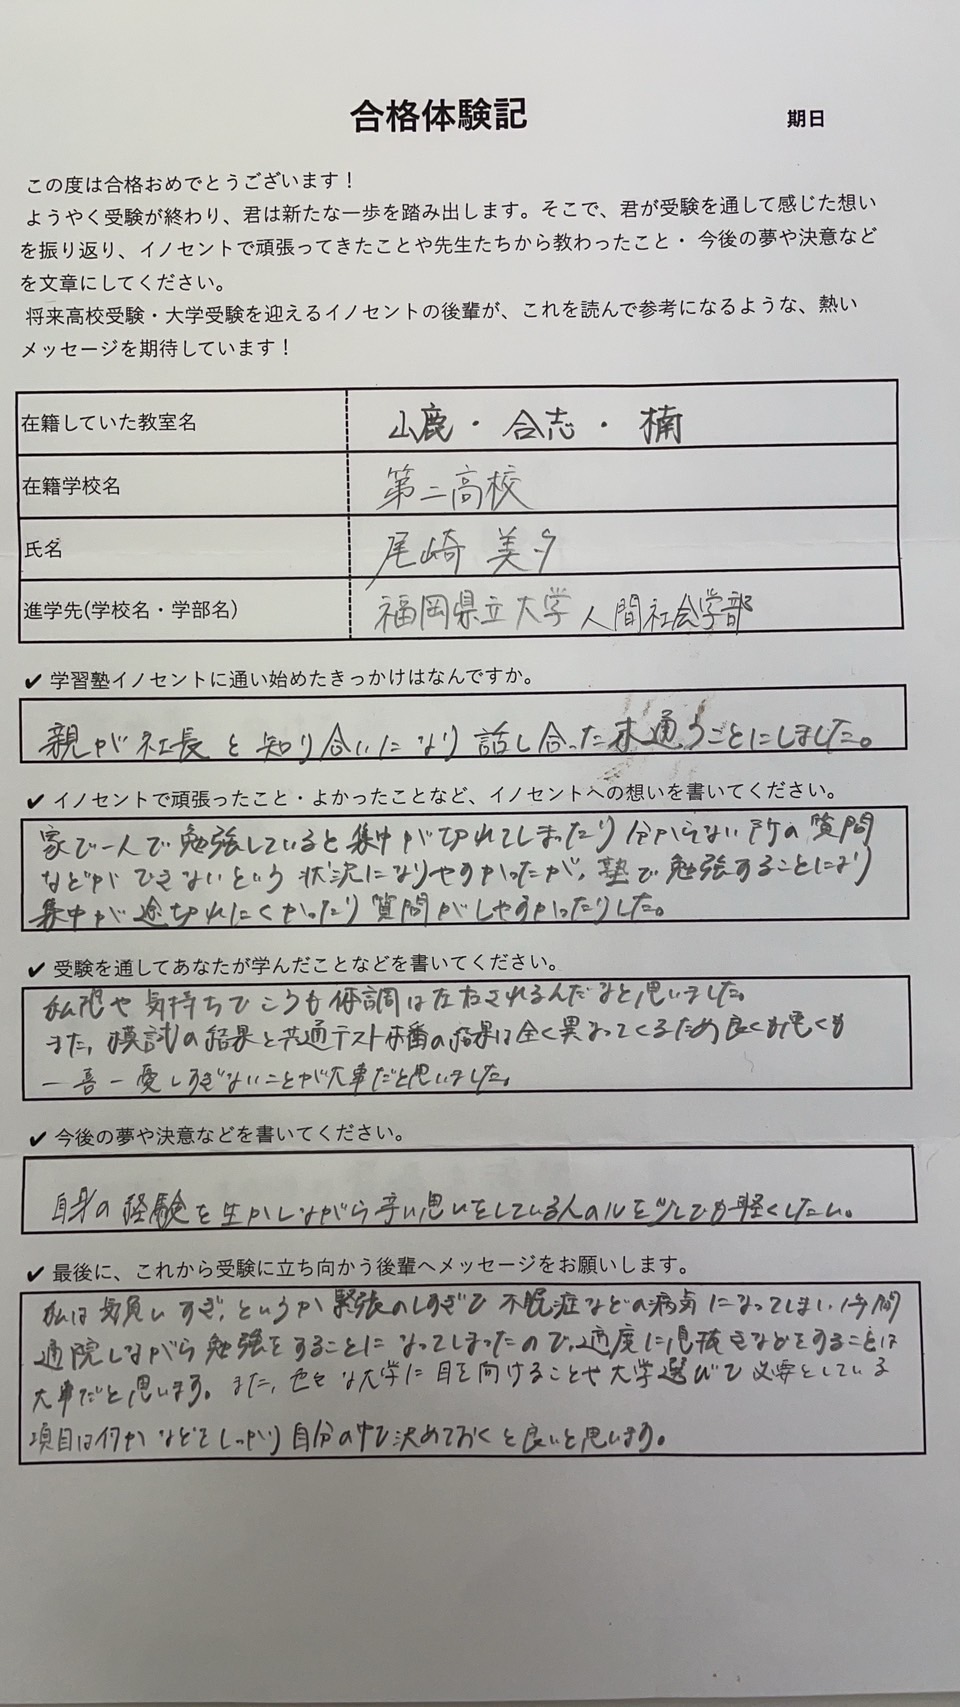 合格体験記
期日
この度は合格おめでとうございます！
ようやく受験が終わり、君は新たな一歩を踏み出します。そこで、君が受験を通して感じた想い
を振り返り、イノセントで頑張ってきたことや先生たちから教わったこと・ 今後の夢や決意など
を文章にしてください。
将来高校受験・大学受験を迎えるイノセントの後輩が、これを読んで参考になるような、熱い
メッセージを期待しています！
在籍していた教室名 山鹿・合志・楠
在籍学校名 第二高校
氏名 尾崎 美夕
進学先(学校名・学部名) 福岡県立大学 人間社会学部
✔ 学習塾イノセントに通い始めたきっかけはなんですか。
親が社長と知り合いになり話し合った末通うことにしました。
✔ イノセントで頑張ったこと・よかったことなど、イノセントへの想いを書いてください。
家で一人で勉強していると集中が切れてしまったり分からない所の質問
などができないという状況になりやすかったが、塾で勉強することにより
集中が途切れにくかったり質問がしやすかったりした。
✔ 受験を通してあなたが学んだことなどを書いてください。
や気持ちひとつで体調は左右されるんだなと思いました。
また、模試の結果と共通テスト本番の結果は全く異なってくるため良くも悪くも
一喜一憂しすぎないことが大事だと思いました。
✔ 今後の夢や決意などを書いてください。
自身の経験を生かしながら辛い思いをしている人の心を少しでも軽くしたい。
✔ 最後に、これから受験に立ち向かう後輩へメッセージをお願いします。
私は気負いすぎ、というか緊張のしすぎで不眠症などの病気になってしまい、1年間
通院しながら勉強をすることになってしまったので、適度に息抜きなどをすることは
大事だと思います。また、色々な大学に目を向けることや大学選びで必要としている
項目は何かなどをしっかり自分の中で決めておくと良いと思います。